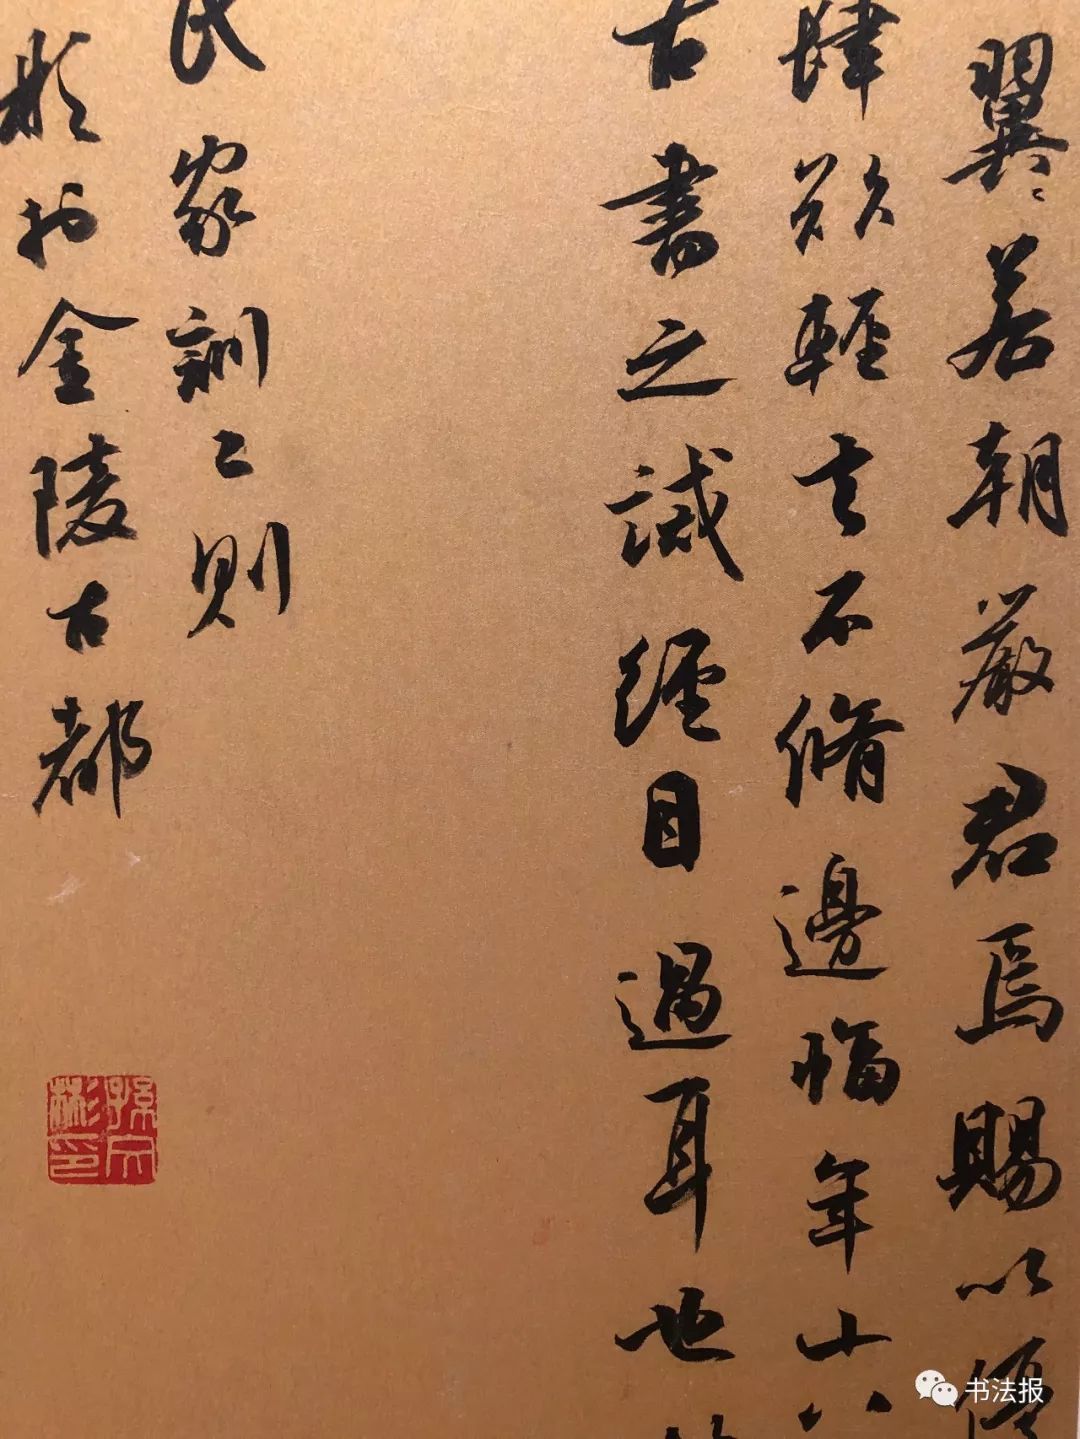 翼〻若朝嚴君焉賜以優
肆欲輕言不脩邊幅年十八
古書之誡經目過耳也
氏家訓二則
彬於金陵古都
孫 彬印
书法报